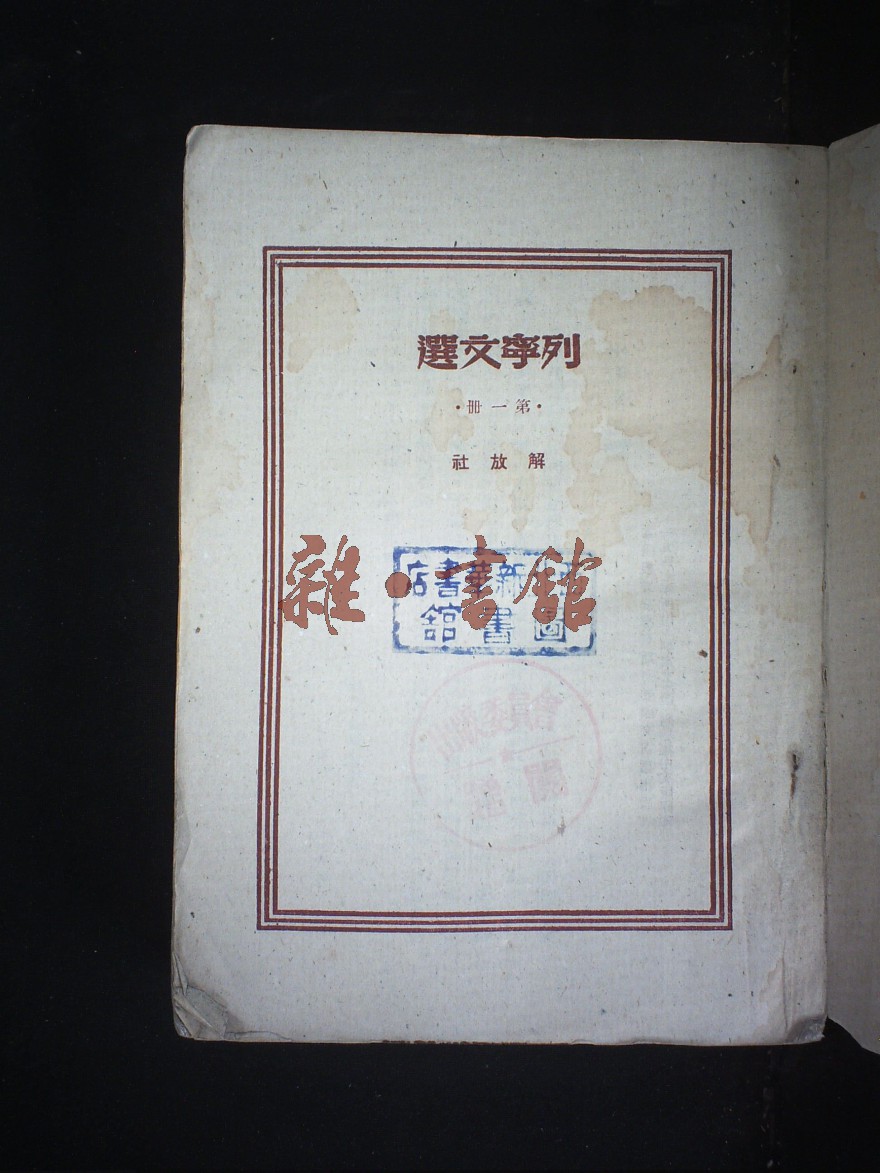 列寧文選
·第一冊·
解放社
新華書店
圖書館
雜·書館